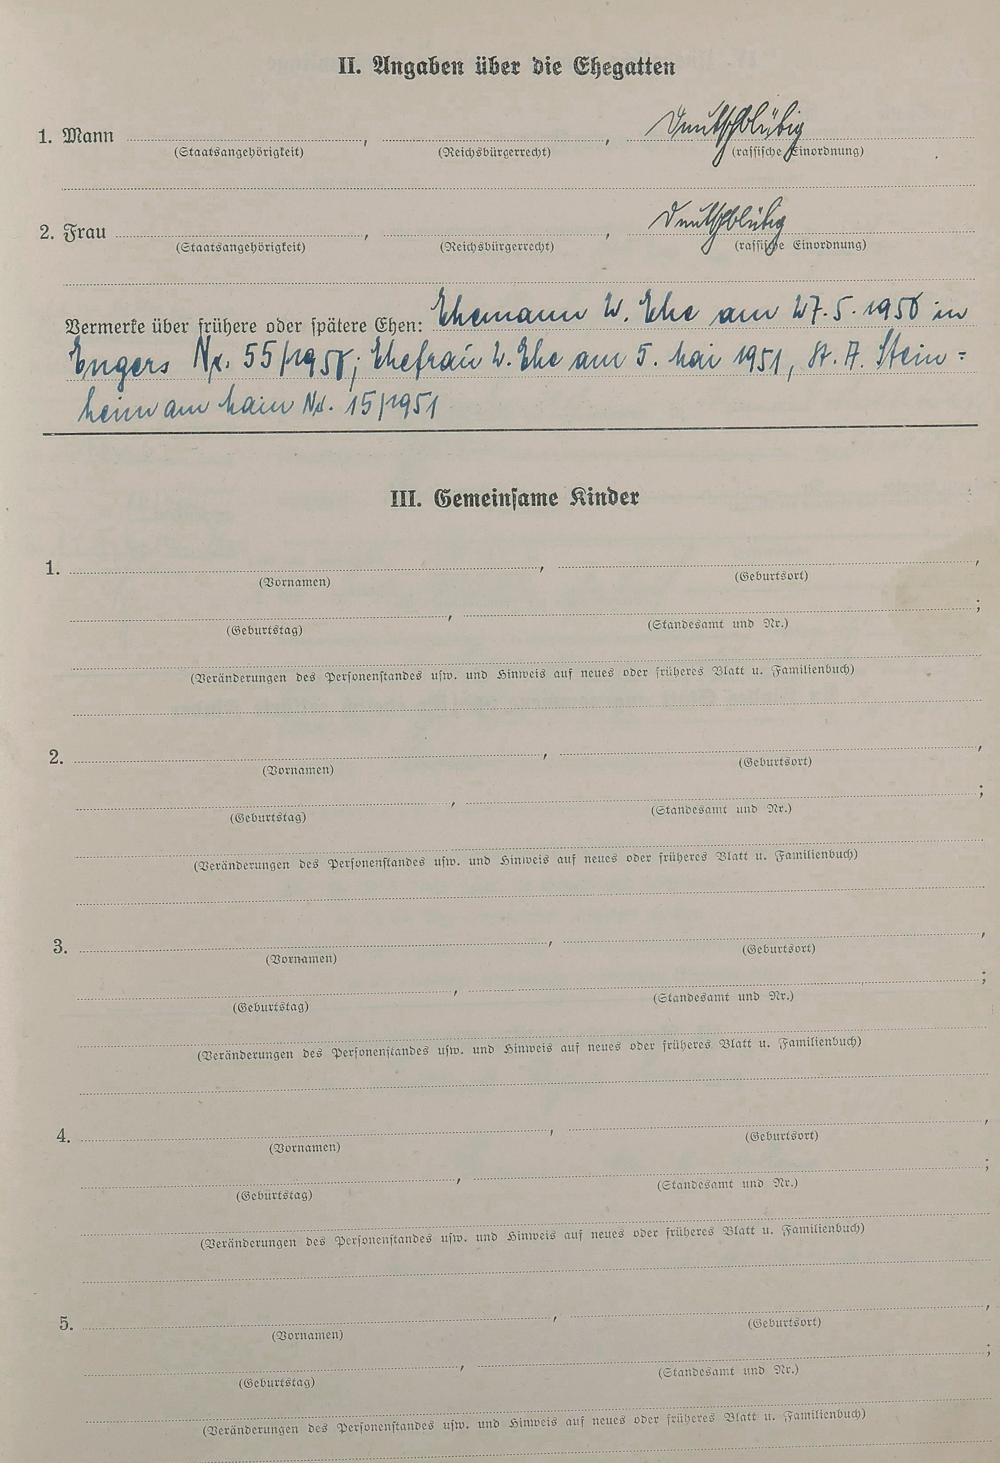 II. Angaben über die Ehegatten
1. Mann , , Deutschblütig
(Staatsangehörigkeit) (Reichsbürgerrecht) (rassische Einordnung)
2. Frau , , Deutschblütig
(Staatsangehörigkeit) (Reichsbürgerrecht) (rassische Einordnung)
Vermerke über frühere oder spätere Ehen: Ehemann 2. Ehe am 27.5. in
Engers Nr. ; Ehefrau 2. Ehe am 5. Mai 1951, St. A. Stein=
heim am Main Nr. 15/1951
III. Gemeinsame Kinder
1. , ,
(Vornamen) (Geburtsort)
, ;
(Geburtstag) (Standesamt und Nr.)
(Veränderungen des Personenstandes usw. und Hinweis auf neues oder früheres Blatt u. Familienbuch)
2. , ,
(Vornamen) (Geburtsort)
, ;
(Geburtstag) (Standesamt und Nr.)
(Veränderungen des Personenstandes usw. und Hinweis auf neues oder früheres Blatt u. Familienbuch)
3. , ,
(Vornamen) (Geburtsort)
, ;
(Geburtstag) (Standesamt und Nr.)
(Veränderungen des Personenstandes usw. und Hinweis auf neues oder früheres Blatt u. Familienbuch)
4. , ,
(Vornamen) (Geburtsort)
, ;
(Geburtstag) (Standesamt und Nr.)
(Veränderungen des Personenstandes usw. und Hinweis auf neues oder früheres Blatt u. Familienbuch)
5. , ,
(Vornamen) (Geburtsort)
, ;
(Geburtstag) (Standesamt und Nr.)
(Veränderungen des Personenstandes usw. und Hinweis auf neues oder früheres Blatt u. Familienbuch)